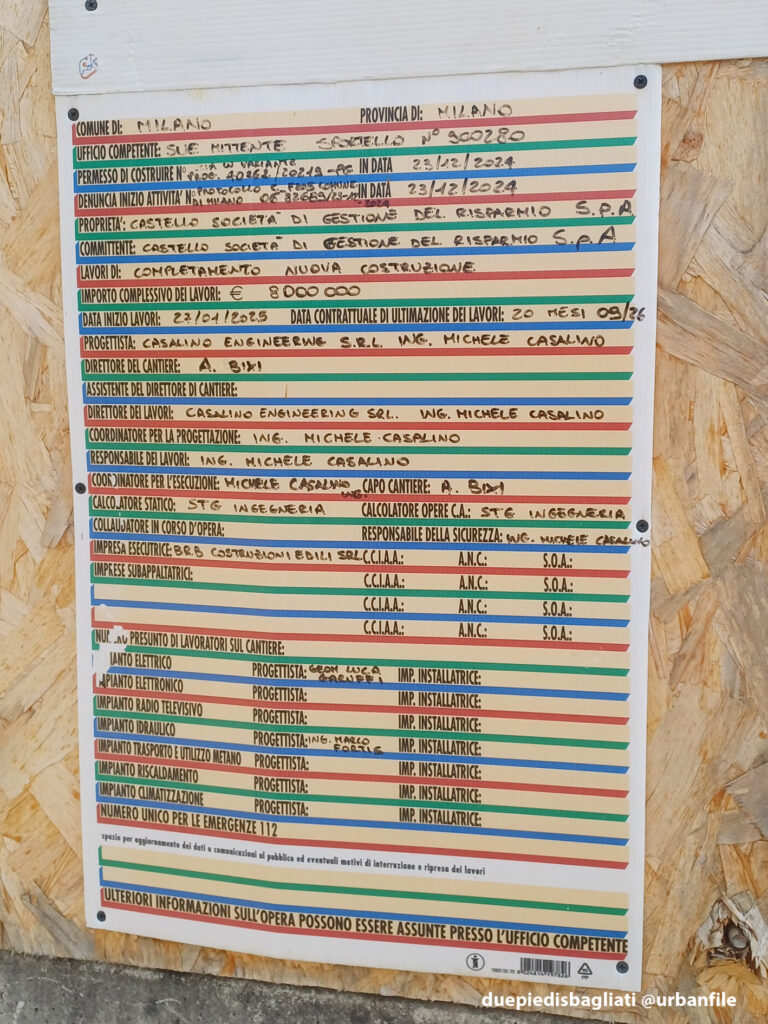 COMUNE DI: MILANO PROVINCIA DI: MILANO
UFFICIO COMPETENTE: SUE MITTENTE SPORTELLO N° 900280
PERMESSO DI COSTRUIRE N° IN VARIANTE PROG. IN DATA 23/12/2024
DENUNCIA INIZIO ATTIVITA' N° PROTOCOLLO COMUNE DI MILANO 2024 IN DATA 23/12/2024
PROPRIETA': CASTELLO SOCIETA' DI GESTIONE DEL RISPARMIO S.p.A
COMMITTENTE: CASTELLO SOCIETA' DI GESTIONE DEL RISPARMIO S.p.A
LAVORI DI: COMPLETAMENTO NUOVA COSTRUZIONE
IMPORTO COMPLESSIVO DEI LAVORI: € 8000000
DATA INIZIO LAVORI: 27/01/2025 DATA CONTRATTUALE DI ULTIMAZIONE DEI LAVORI: 20 MESI 09/26
PROGETTISTA: CASALINO ENGINEERING S.R.L. ING. MICHELE CASALINO
DIRETTORE DEL CANTIERE: A. BIXI
ASSISTENTE DEL DIRETTORE DI CANTIERE:
DIRETTORE DEI LAVORI: CASALINO ENGINEERING SRL. ING. MICHELE CASALINO
COORDINATORE PER LA PROGETTAZIONE: ING. MICHELE CASALINO
RESPONSABILE DEI LAVORI: ING. MICHELE CASALINO
COORDINATORE PER L'ESECUZIONE: MICHELE CASALINO ING. CAPO CANTIERE: A. BIXI
CALCOLATORE STATICO: STG INGEGNERIA CALCOLATORE OPERE C.A.: STG INGEGNERIA
COLLAUDATORE IN CORSO D'OPERA: RESPONSABILE DELLA SICUREZZA: ING. MICHELE CASALINO
IMPRESA ESECUTRICE: B.R.B COSTRUZIONI EDILI SRL C.C.I.A.A.: A.N.C.: S.O.A.:
IMPRESE SUBAPPALTATRICI: C.C.I.A.A.: A.N.C.: S.O.A.:
C.C.I.A.A.: A.N.C.: S.O.A.:
C.C.I.A.A.: A.N.C.: S.O.A.:
NUMERO PRESUNTO DI LAVORATORI SUL CANTIERE:
IANTO ELETTRICO PROGETTISTA: GEOM LUCA GARUFFI IMP. INSTALLATRICE:
IMPIANTO ELETTRONICO PROGETTISTA: IMP. INSTALLATRICE:
IMPIANTO RADIO TELEVISIVO PROGETTISTA: IMP. INSTALLATRICE:
IMPIANTO IDRAULICO PROGETTISTA: ING. MARCO FORTIS IMP. INSTALLATRICE:
IMPIANTO TRASPORTO E UTILIZZO METANO PROGETTISTA: IMP. INSTALLATRICE:
IMPIANTO RISCALDAMENTO PROGETTISTA: IMP. INSTALLATRICE:
IMPIANTO CLIMATIZZAZIONE PROGETTISTA: IMP. INSTALLATRICE:
NUMERO UNICO PER LE EMERGENZE 112
spazio per aggiornamento dei dati o comunicazioni al pubblico ed eventuali motivi di interruzione e ripresa dei lavori
ULTERIORI INFORMAZIONI SULL'OPERA POSSONO ESSERE ASSUNTE PRESSO L'UFFICIO COMPETENTE
PP
duepiedisbagliati @urbanfile